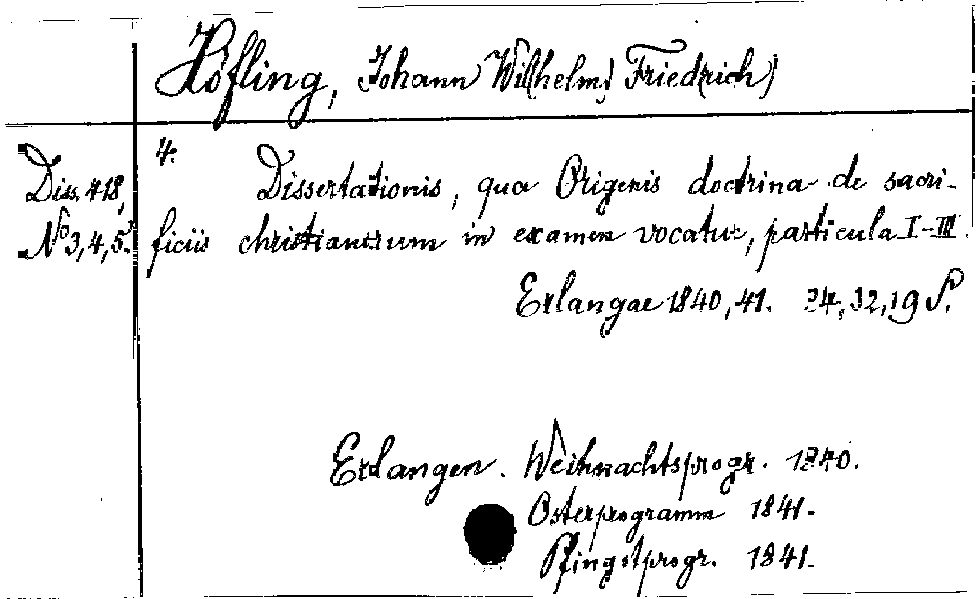 Höfling, Johann Wilhelm Friedrich
Diss. 418, 4. Dissertationis, qua Origenis doctrina de sacri-
No 3, 4, 5. ficiis christianorum in examen vocatur, particula I-III.
Erlangae 1840, 41. 24, 32, 19 S.
Erlangen. Weihnachtsprogr. 1840.
Osterprogramm 1841.
Pfingstprogr. 1841.